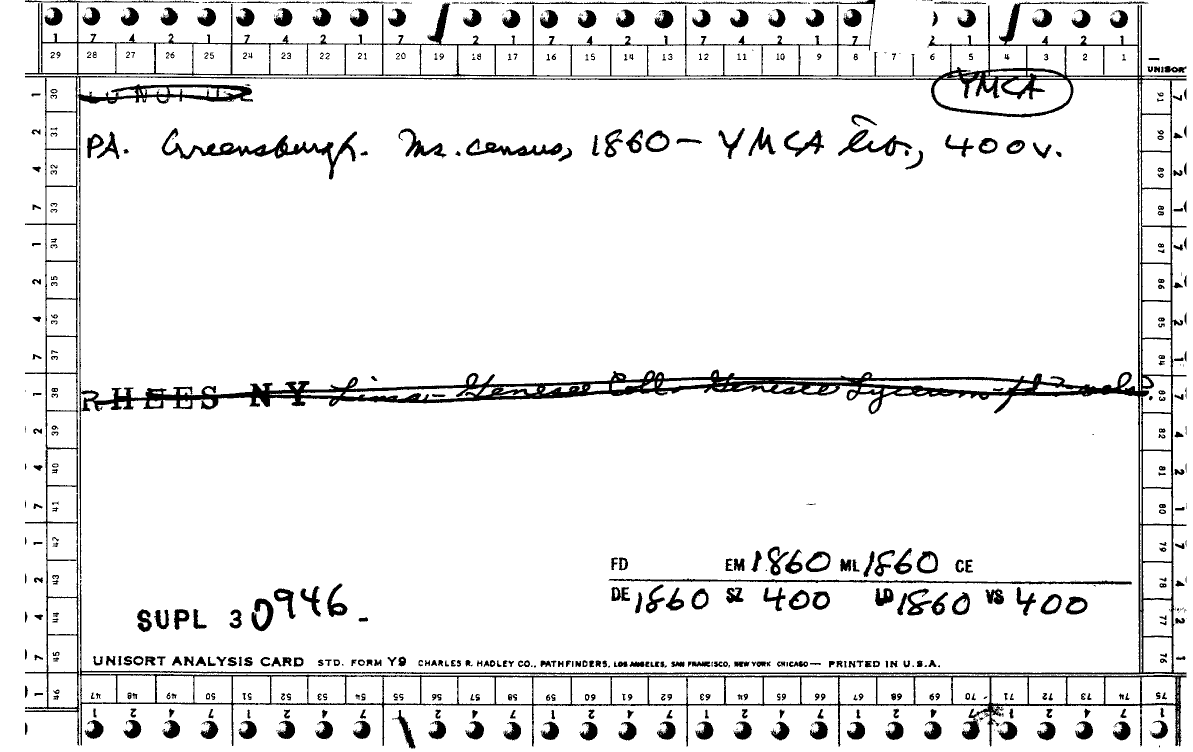 7 4 2 1 7 4 2 1 7 2 1 7 4 2 1 7 4 2 1 7 2 1 4 2 1
29 28 27 26 25 24 23 22 21 20 19 18 17 16 15 14 13 12 11 10 9 8 7 6 5 4 3 2 1
UNISORT
YMCA
DO NOT USE
PA. Greensburgh. Ms. census, 1860 – YMCA lib., 400v.
RHEES NY Lima – Genesee Coll. Genesee Lyceum –
FD EM 1860 ML 1860 CE
DE 1860 SZ 400 LD 1860 VS 400
SUPL 30946-
UNISORT ANALYSIS CARD STD. FORM Y9 CHARLES R. HADLEY CO., PATHFINDERS, LOS ANGELES, SAN FRANCISCO, NEW YORK CHICAGO — PRINTED IN U.S.A.
47 48 49 50 51 52 53 54 55 56 57 58 59 60 61 62 63 64 65 66 67 68 69 70 71 72 73 74 75